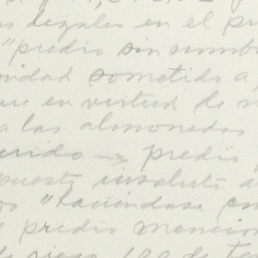 legales en el pr
"predio sin numb
nidad sometida a
en virtud de
a las almonedas
erido predio
puesto insoluto a
os "haciendose con
predio mencion
de riego, 100 de te